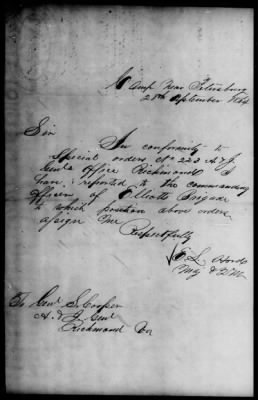 Camp Near Petersburg
28th September 1864
Sir
In conformity to
Special orders No 223 A & I
Genls Office Richmond I
have reported to the commanding
officer of Elliotts Brigade
to which position above orders
assign me
Respectfully
Maj & QM
To Genl S. Cooper
A & I Genl
Richmond Va